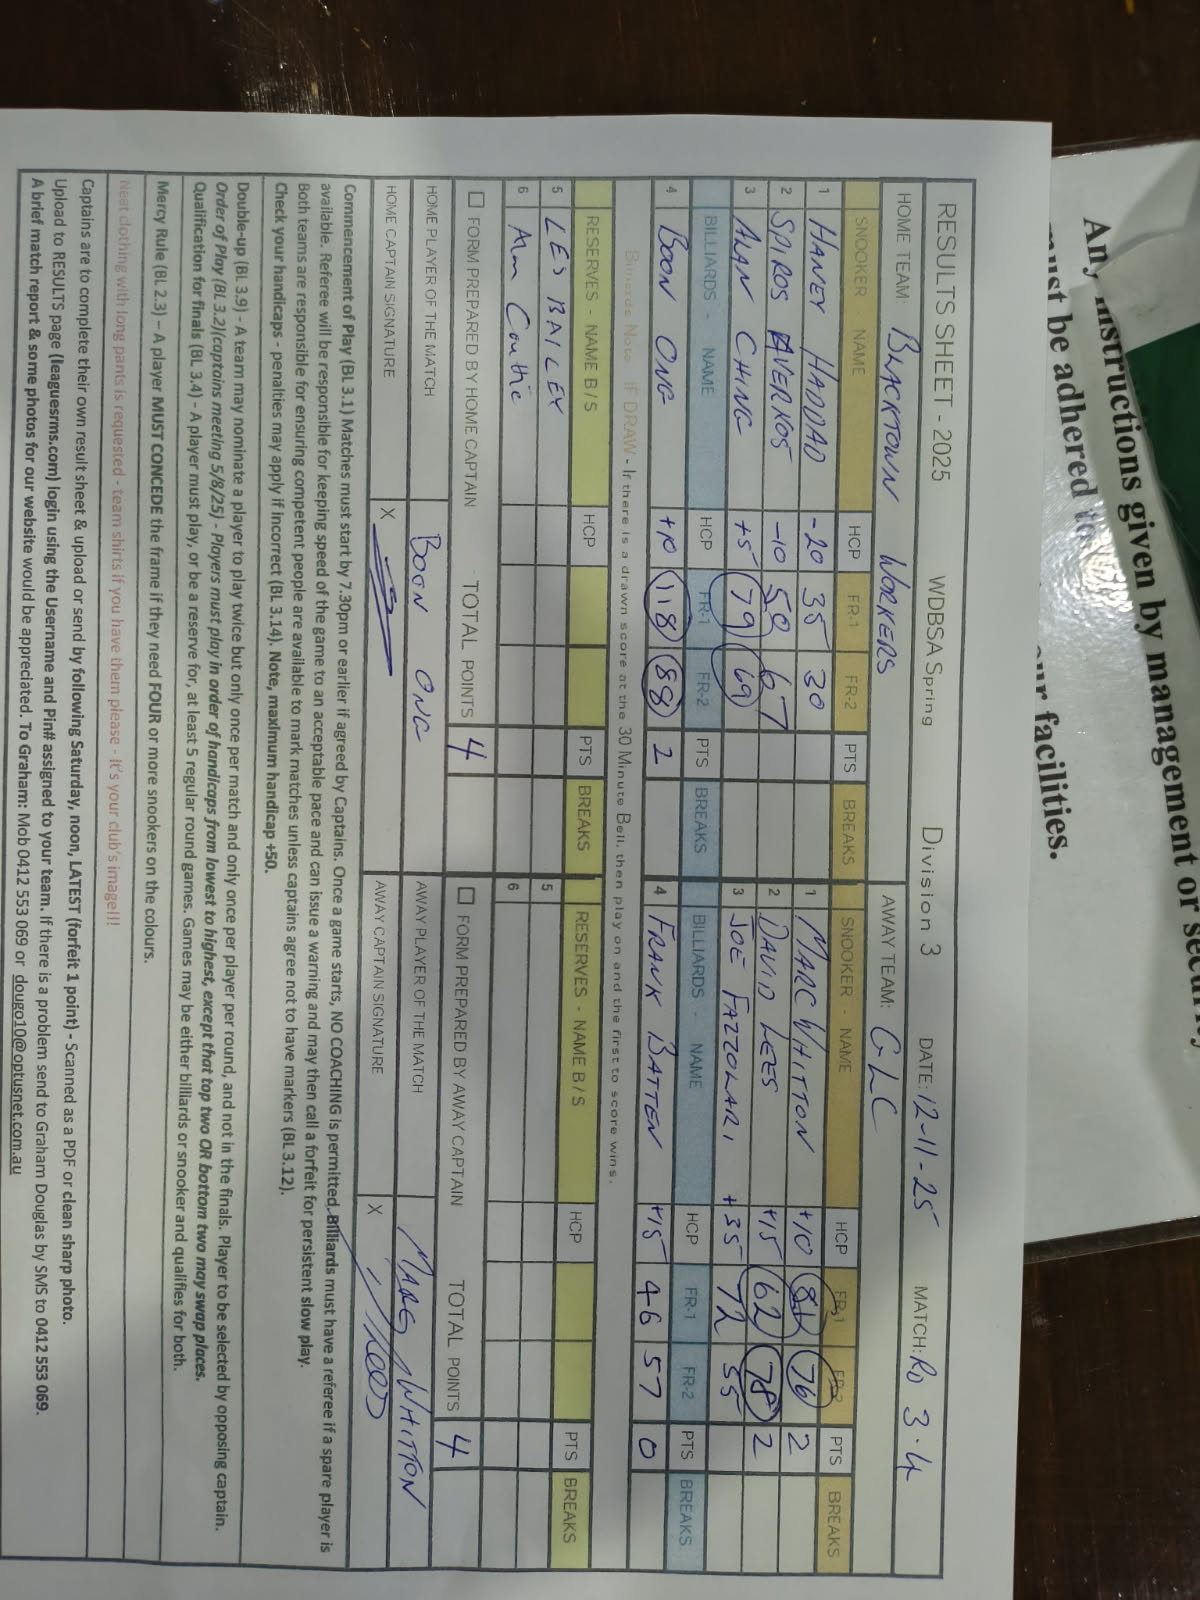 Any instructions given by management or security
must be adhered to
our facilities.
RESULTS SHEET - 2025 WDBSA Spring Division 3 DATE: 12-11-25 MATCH: RD 3.4
HOME TEAM: BLACKTOWN WORKERS AWAY TEAM: GLC
SNOOKER - NAME HCP FR-1 FR-2 PTS BREAKS SNOOKER - NAME HCP FR-1 FR-2 PTS BREAKS
1 HANEY HADDAD -20 35 30 1 MARC WHITTON +10 76 2
2 SPIROS AVERKOS -10 50 67 2 DAVID LEES +15 62 78 2
3 ALAN CHING +5 79 69 3 JOE FAZZOLARI +35 72 55
BILLIARDS - NAME HCP FR-1 FR-2 PTS BREAKS BILLIARDS - NAME HCP FR-1 FR-2 PTS BREAKS
4 BOON ONG +10 118 88 2 4 FRANK BATTEN +15 46 57 0
Billiards Note: IF DRAW - If there is a drawn score at the 30 Minute Bell, then play on and the first to score wins.
RESERVES - NAME B/S HCP PTS BREAKS RESERVES - NAME B/S HCP PTS BREAKS
5 LES BAILEY 5
6 6
FORM PREPARED BY HOME CAPTAIN TOTAL POINTS 4 FORM PREPARED BY AWAY CAPTAIN TOTAL POINTS 4
HOME PLAYER OF THE MATCH BOON ONG AWAY PLAYER OF THE MATCH MARC WHITTON
HOME CAPTAIN SIGNATURE X AWAY CAPTAIN SIGNATURE X
Commencement of Play (BL 3.1) Matches must start by 7.30pm or earlier if agreed by Captains. Once a game starts, NO COACHING is permitted. Billiards must have a referee if a spare player is
available. Referee will be responsible for keeping speed of the game to an acceptable pace and can issue a warning and may then call a forfeit for persistent slow play.
Both teams are responsible for ensuring competent people are available to mark matches unless captains agree not to have markers (BL 3.12).
Check your handicaps - penalties may apply if incorrect (BL 3.14). Note, maximum handicap +50.
Double-up (BL 3.9) - A team may nominate a player to play twice but only once per match and only once per player per round, and not in the finals. Player to be selected by opposing captain.
Order of Play (BL 3.2)(captains meeting 5/8/25) - Players must play in order of handicaps from lowest to highest, except that top two OR bottom two may swap places.
Qualification for finals (BL 3.4) - A player must play, or be a reserve for, at least 5 regular round games. Games may be either billiards or snooker and qualifies for both.
Mercy Rule (BL 2.3) – A player MUST CONCEDE the frame if they need FOUR or more snookers on the colours.
Neat clothing with long pants is requested - team shirts if you have them please - It's your club's image!!!
Captains are to complete their own result sheet & upload or send by following Saturday, noon, LATEST (forfeit 1 point) - Scanned as a PDF or clean sharp photo.
Upload to RESULTS page (leaguesrms.com) login using the Username and Pin# assigned to your team. If there is a problem send to Graham Douglas by SMS to 0412 553 069.
A brief match report & some photos for our website would be appreciated. To Graham: Mob 0412 553 069 or dougo10@optusnet.com.au